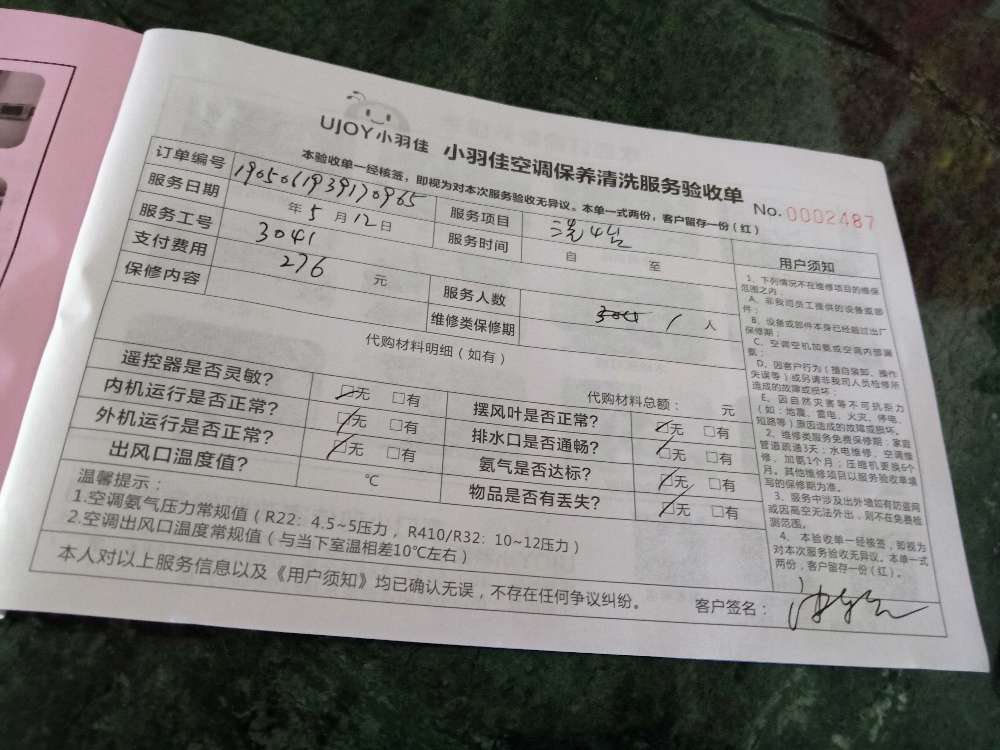 UJOY小羽佳 小羽佳空调保养清洗服务验收单
本验收单一经核签，即视为对本次服务验收无异议。本单一式两份，客户留存一份（红）
No. 0002487
订单编号 1905061939170965 服务项目
服务日期 年 5 月 12 日 服务时间 自 至
服务工号 3041
支付费用 276 元 服务人数 1 人
保修内容 维修类保修期
代购材料明细（如有）
代购材料总额： 元
遥控器是否灵敏？ ☑无 □有 摆风叶是否正常？ ☑无 □有
内机运行是否正常？ ☑无 □有 排水口是否通畅？ ☑无 □有
外机运行是否正常？ ☑无 □有 氨气是否达标？ ☑无 □有
出风口温度值？ ℃ 物品是否有丢失？ ☑无 □有
温馨提示：
1.空调氨气压力常规值（R22：4.5~5压力，R410/R32：10~12压力）
2.空调出风口温度常规值（与当下室温相差10℃左右）
本人对以上服务信息以及《用户须知》均已确认无误，不存在任何争议纠纷。 客户签名：
用户须知
1、下列情况不在维修项目的维保
范围之内：
A、非我司员工提供的设备或部
件；
B、设备或部件本身已经超过出厂
保修期；
C、空调空机加氨或空调内部漏
氨；
D、因客户行为（擅自装卸、操作
失误等）或另请非我司人员检修所
造成的故障或损坏；
E、因自然灾害等不可抗拒力
（如：地震、雷电、火灾、停电、
短路等）原因造成的故障或损坏。
2、维修类服务免费保修期：家庭
管道疏通3天；水电维修、空调维
修、加氨1个月；压缩机更换6个
月。其他维修项目以服务验收单填
写的保修期为准。
3、服务中涉及出外墙如有防盗网
或因高空无法外出，则不在免费检
测范围。
4、本验收单一经核签，即视为
对本次服务验收无异议。本单一式
两份，客户留存一份（红）。